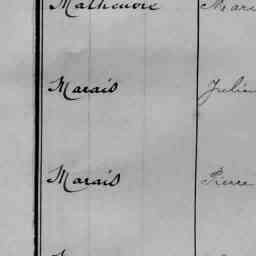 Mathenore Mari
Marais Julie
Marais Pierre